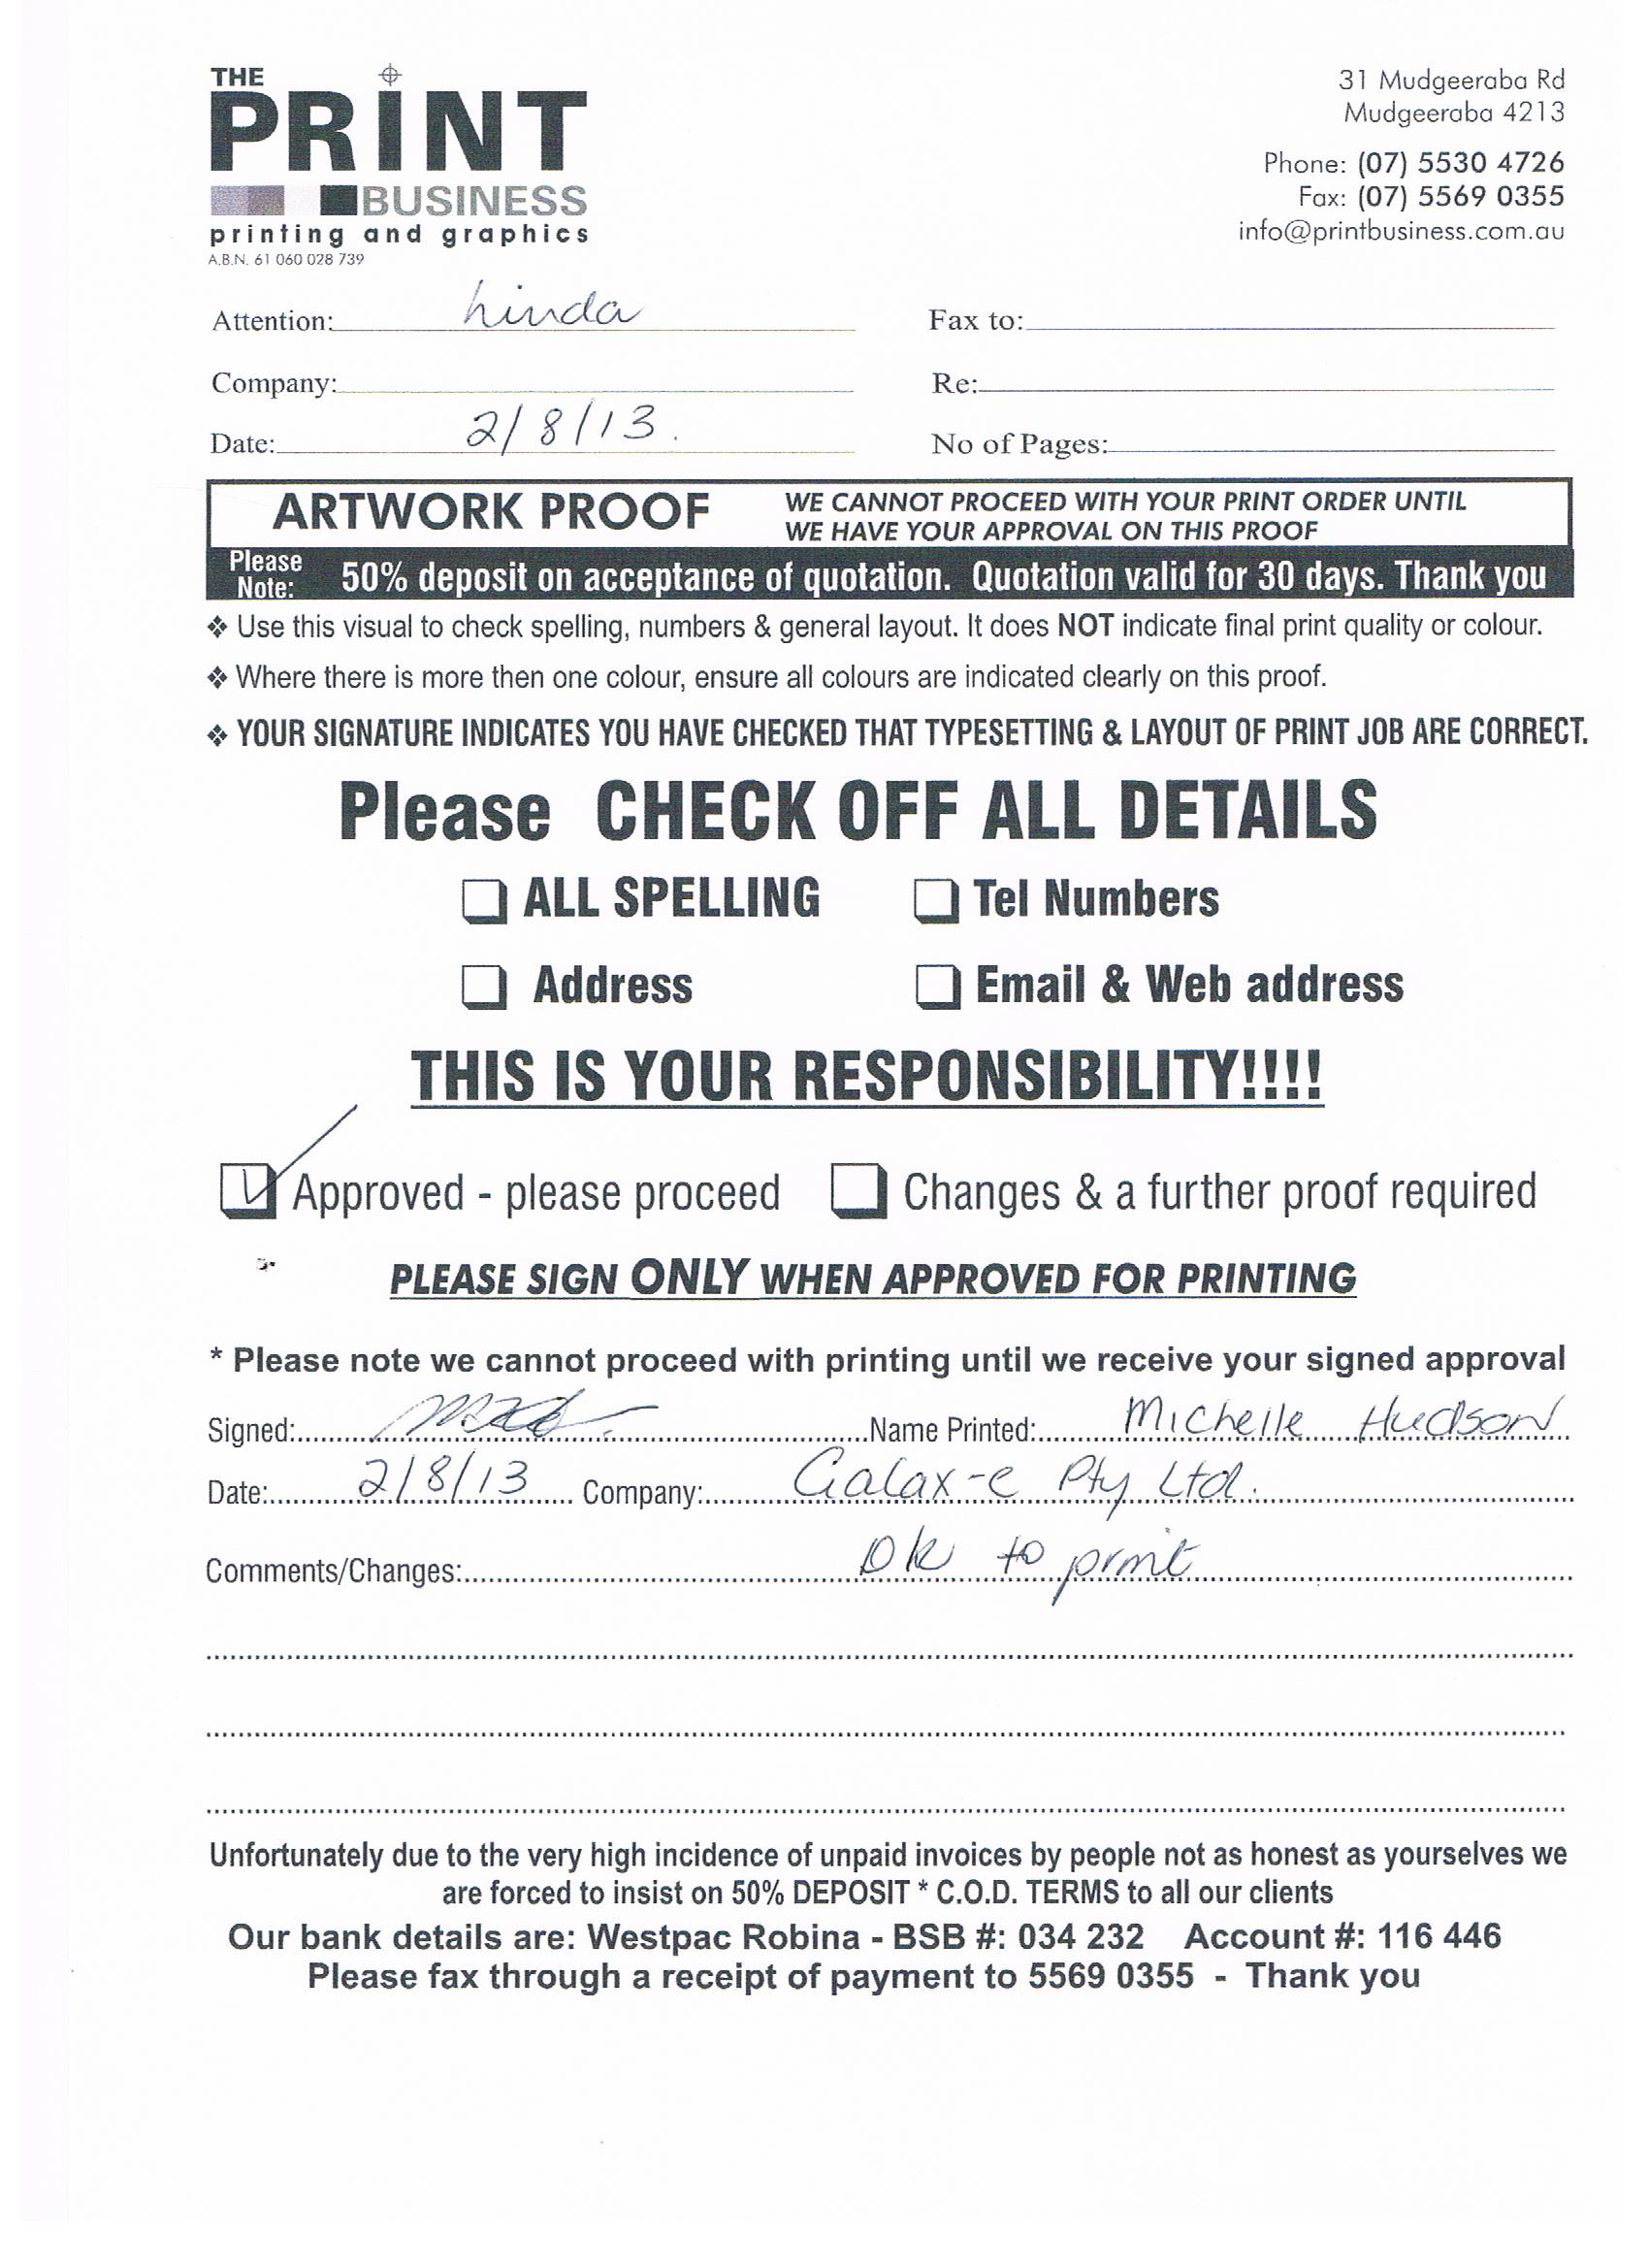 THE
PRINT
BUSINESS
printing and graphics
A.B.N. 61 060 028 739
31 Mudgeeraba Rd
Mudgeeraba 4213
Phone: (07) 5530 4726
Fax: (07) 5569 0355
info@printbusiness.com.au
Attention: Linda Fax to:
Company: Re:
Date: 2/8/13. No of Pages:
ARTWORK PROOF
WE CANNOT PROCEED WITH YOUR PRINT ORDER UNTIL
WE HAVE YOUR APPROVAL ON THIS PROOF
Please Note: 50% deposit on acceptance of quotation. Quotation valid for 30 days. Thank you
❖ Use this visual to check spelling, numbers & general layout. It does NOT indicate final print quality or colour.
❖ Where there is more then one colour, ensure all colours are indicated clearly on this proof.
❖ YOUR SIGNATURE INDICATES YOU HAVE CHECKED THAT TYPESETTING & LAYOUT OF PRINT JOB ARE CORRECT.
Please CHECK OFF ALL DETAILS
ALL SPELLING Tel Numbers
Address Email & Web address
THIS IS YOUR RESPONSIBILITY!!!!
Approved - please proceed Changes & a further proof required
PLEASE SIGN ONLY WHEN APPROVED FOR PRINTING
* Please note we cannot proceed with printing until we receive your signed approval
Signed: Name Printed: Michelle Hudson
Date: 2/8/13 Company: Galax-e Pty Ltd.
Comments/Changes: Ok to print
Unfortunately due to the very high incidence of unpaid invoices by people not as honest as yourselves we
are forced to insist on 50% DEPOSIT * C.O.D. TERMS to all our clients
Our bank details are: Westpac Robina - BSB #: 034 232 Account #: 116 446
Please fax through a receipt of payment to 5569 0355 - Thank you